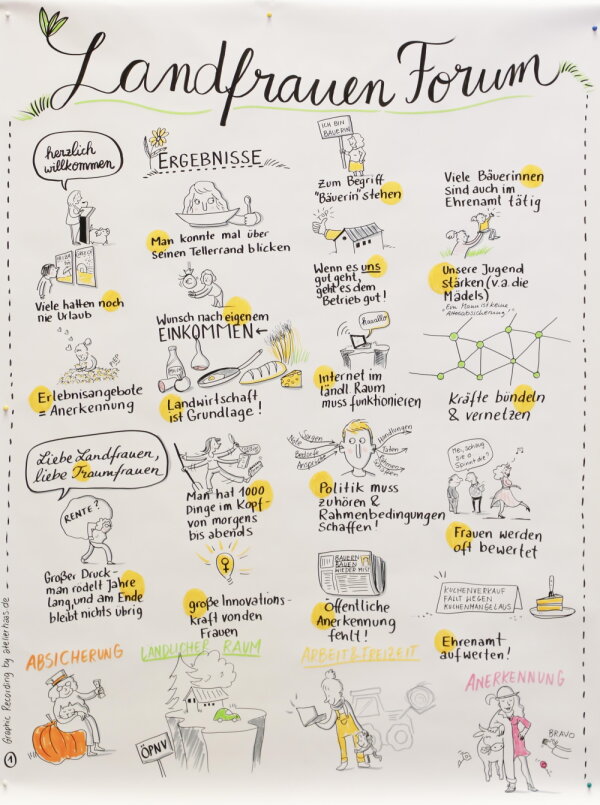 Landfrauen Forum
herzlich
willkommen
ERGEBNISSE
ICH BIN
BÄUERIN
Viele hatten noch
nie Urlaub
Man konnte mal über
seinen Tellerrand blicken
Zum Begriff
"Bäuerin" stehen
Viele Bäuerinnen
sind auch im
Ehrenamt tätig
Wunsch nach eigenem
EINKOMMEN
Wenn es uns
gut geht,
geht es dem
Betrieb gut!
Unsere Jugend
stärken (v.a. die
Mädels)
"Ein Mann ist keine
Altersabsicherung"
Erlebnisangebote
= Anerkennung
MILCH
Landwirtschaft
ist Grundlage!
Haaallo
Internet im
ländl. Raum
muss funktionieren
Kräfte bündeln
& vernetzen
Liebe Landfrauen,
liebe Traumfrauen
RENTE?
Großer Druck-
man rödelt Jahre
lang, und am Ende
bleibt nichts übrig
Man hat 1000
Dinge im Kopf-
von morgens
bis abends
große Innovations-
kraft von den
Frauen
Sorgen
Nöte
Bedarfe
Ansprüche
Handlungen
Taten
Politik muss
zuhören &
Rahmenbedingungen
Schaffen!
BAUERN
BAUEN
WIEDER MIST
Öffentliche
Anerkennung
fehlt!
Hei, schaug
sie o
Spinnt die?
Frauen werden
oft bewertet
KUCHENVERKAUF
FÄLLT WEGEN
KUCHENMANGEL AUS
Ehrenamt
aufwerten!
ABSICHERUNG
LÄNDLICHER RAUM
ÖPNV
ARBEIT & FREIZEIT
ANERKENNUNG
BRAVO
1
Graphic Recording by atelierhaas.de